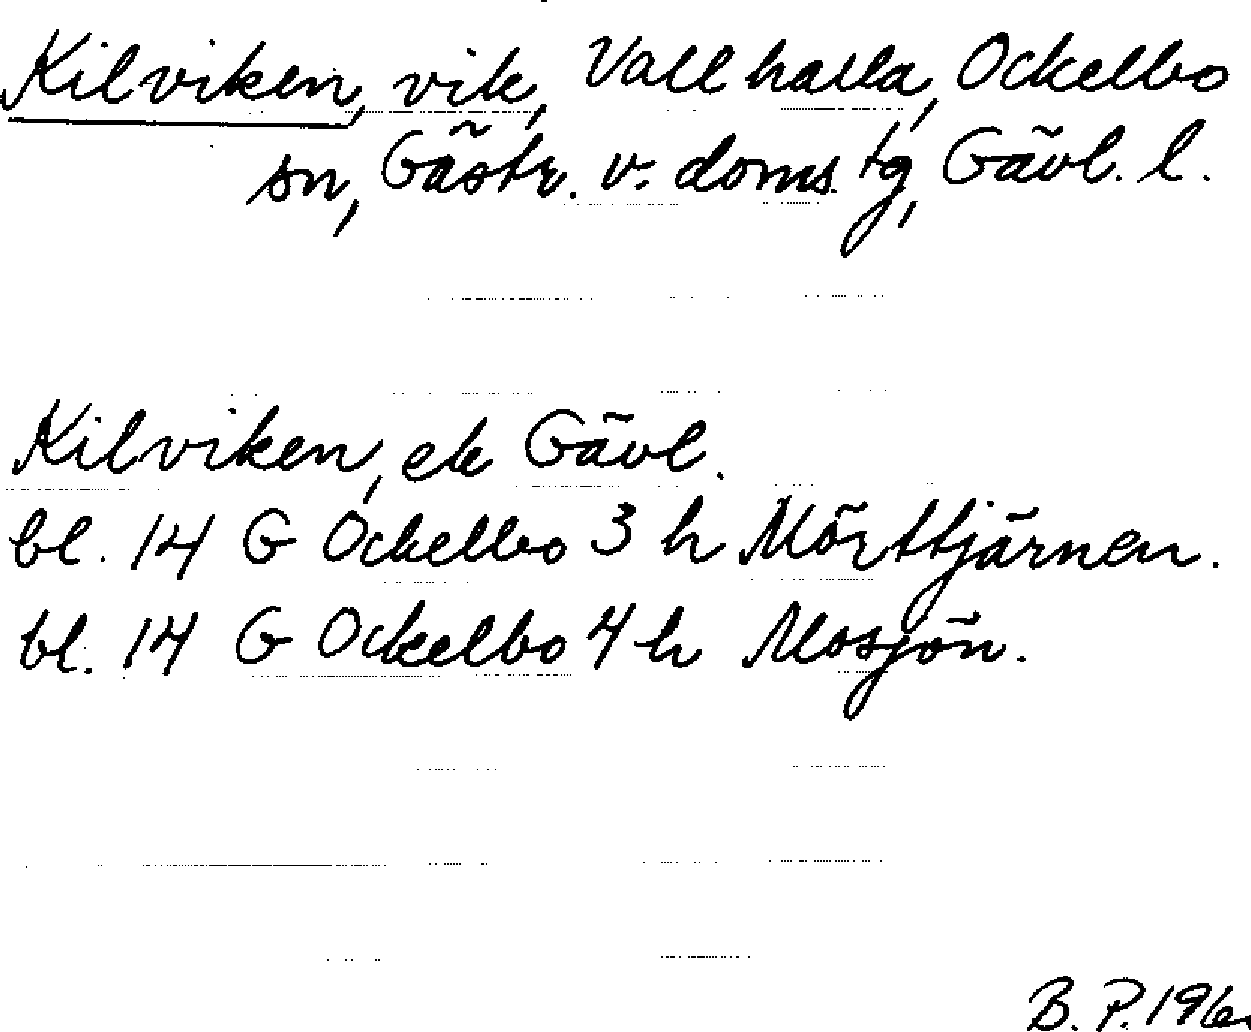 Kilviken, vik, Vallhalla, Ockelbo
sn, Gästr. v. doms. tg, Gävl. l.
Kilviken, ek Gävl.
bl. 14 G Ockelbo 3 h Mörttjärnen.
bl. 14 G Ockelbo 4 h Mosjön.
B. P. 196